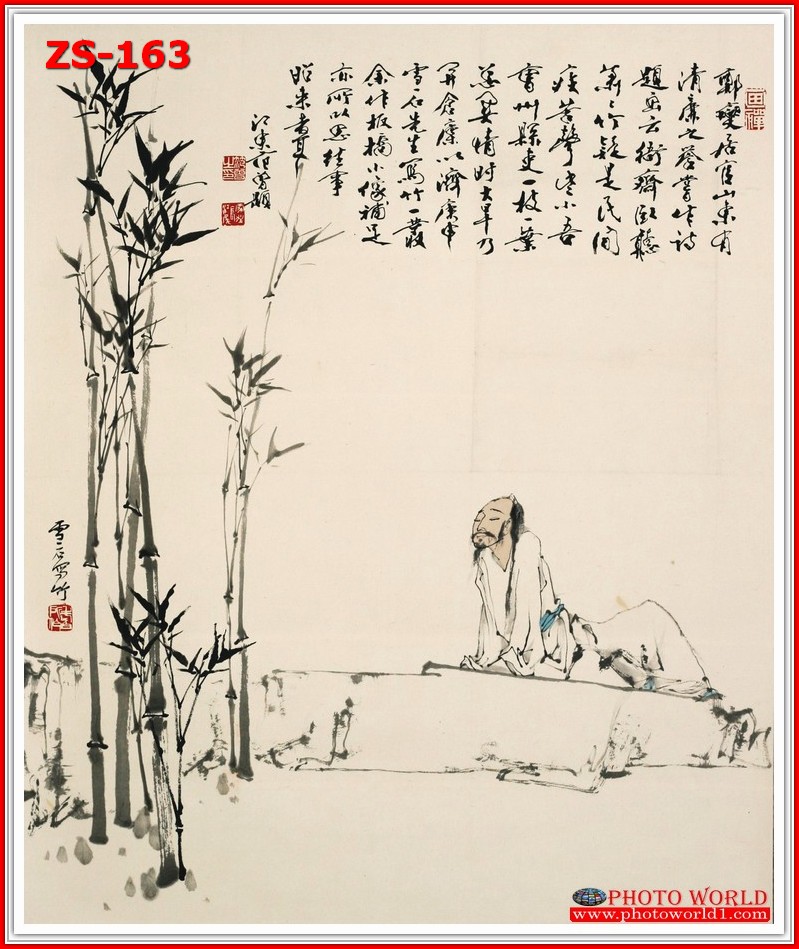 ZS-163
鄭燮居官山東有
清廉之譽嘗作詩
題畫云衙齋臥聽
蕭〻竹疑是民間
疾苦聲些小吾
曹州縣吏一枝一葉
總關情時大旱乃
開倉廩以濟庚申
雪石先生寫竹一叢
余作板橋小像補足
亦所以思往事
昭來者耳
江東范曾題
雪石寫竹
PHOTO WORLD
www.photoworld1.com